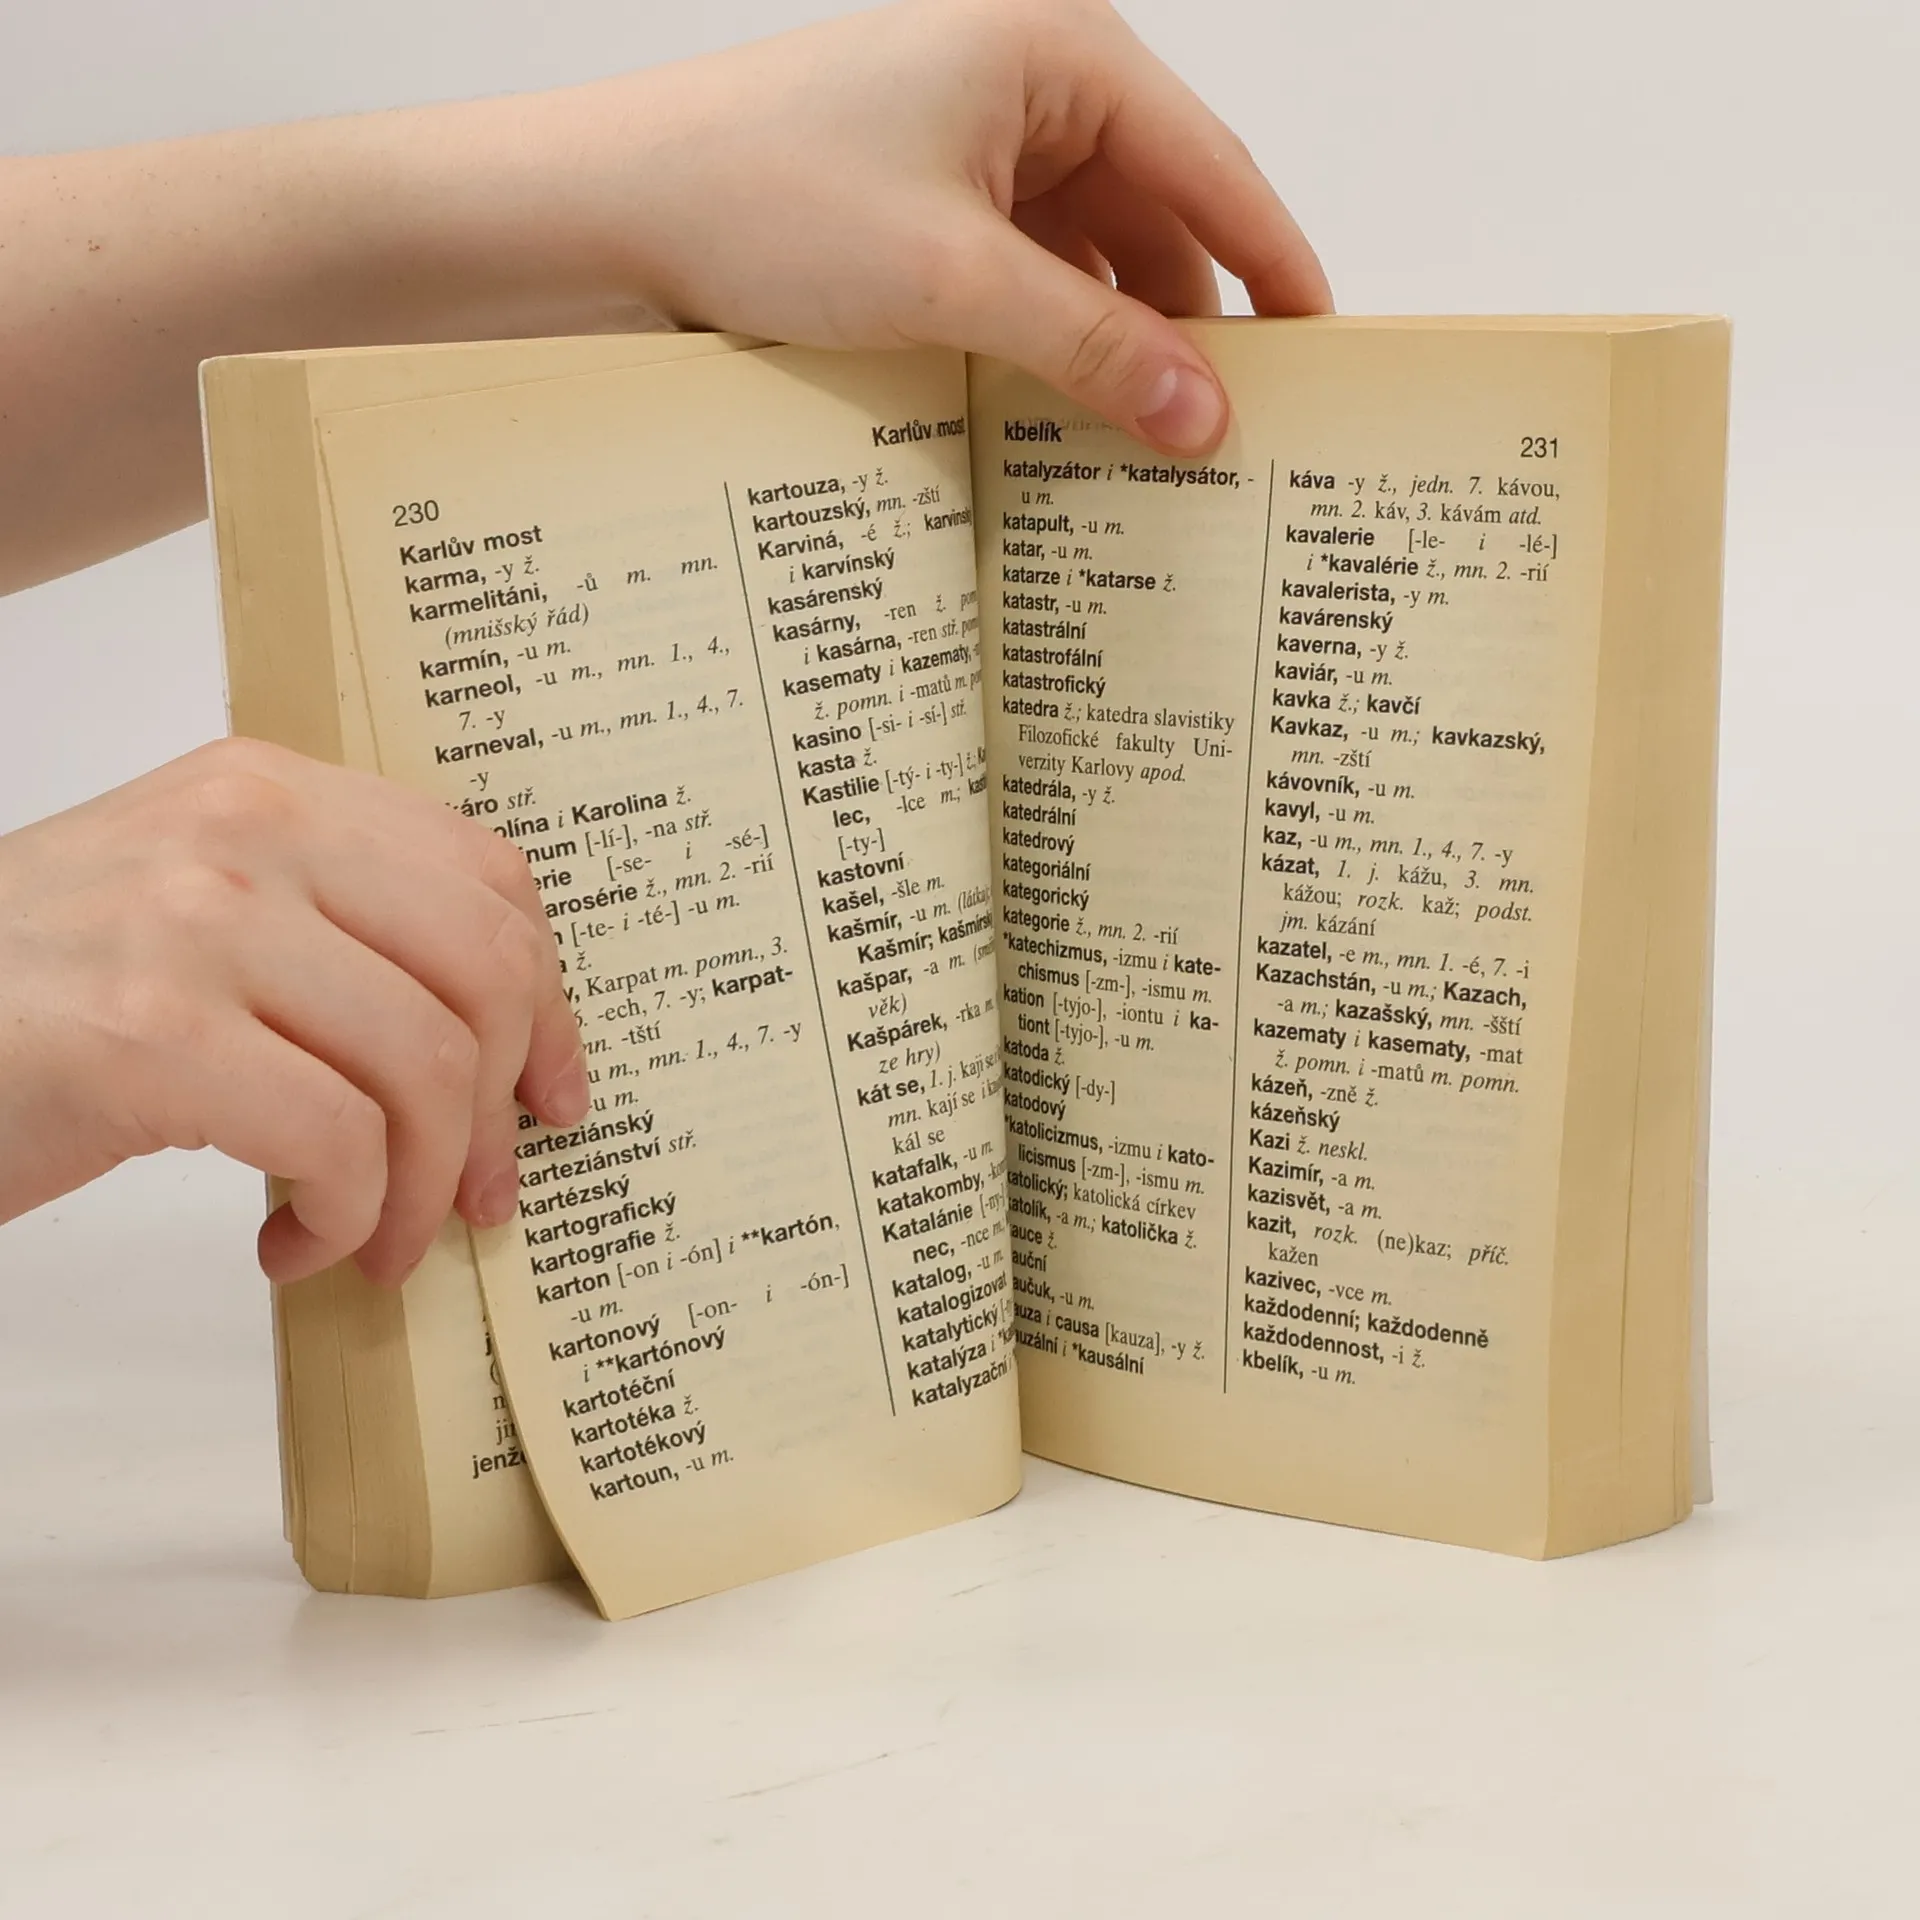 230
Karlův most
Karlův most
karma, -y ž.
karmelitáni, -ů m. mn.
(mnišský řád)
karmín, -u m.
karneol, -u m., mn. 1., 4.,
7. -y
karneval, -u m., mn. 1., 4., 7.
-y
káro stř.
i Karolina ž.
[-lí-], -na stř.
[-se- i -sé-]
ž., mn. 2. -rií
[-te- i -té-] -u m.
ž.
Karpat m. pomn., 3.
-ech, 7. -y; karpat-
-tští
u m., mn. 1., 4., 7. -y
-u m.
karteziánský
karteziánství stř.
kartézský
kartografický
kartografie ž.
karton [-on i -ón] i **kartón,
-u m.
kartonový [-on- i -ón-]
i **kartónový
kartotéční
kartotéka ž.
kartotékový
kartoun, -u m.
kartouza, -y ž.
kartouzský, mn. -zští
Karviná, -é ž.;
i karvínský
kasárenský
kasárny, -ren ž.
i kasárna, -ren stř.
kasematy i kazematy,
ž. pomn. i -matů m.
kasino [-si- i -sí-] stř.
kasta ž.
Kastilie [-tý- i -ty-] ž.;
lec, -lce m.;
[-ty-]
kastovní
kašel, -šle m.
kašmír, -u m.
Kašmír;
kašpar, -a m.
věk)
Kašpárek, -rka m.
ze hry)
kát se, 1. j. kaji se
mn. kají se i
kál se
katafalk, -u m.
katakomby,
Katalánie
nec, -nce m.
katalog, -u m.
katalogizovat
katalytický
katalýza i
katalyzační
kbelík
231
katalyzátor i *katalysátor, -
u m.
katapult, -u m.
katar, -u m.
katarze i *katarse ž.
katastr, -u m.
katastrální
katastrofální
katastrofický
katedra ž.; katedra slavistiky
Filozofické fakulty Uni-
verzity Karlovy apod.
katedrála, -y ž.
katedrální
katedrový
kategoriální
kategorický
kategorie ž., mn. 2. -rií
*katechizmus, -izmu i kate-
chismus [-zm-], -ismu m.
kation [-tyjo-], -iontu i ka-
tiont [-tyjo-], -u m.
katoda ž.
katodický [-dy-]
katodový
*katolicizmus, -izmu i kato-
licismus [-zm-], -ismu m.
katolický; katolická církev
katolík, -a m.; katolička ž.
ž.
-u m.
i causa [kauza], -y ž.
i *kausální
káva -y ž., jedn. 7. kávou,
mn. 2. káv, 3. kávám atd.
kavalerie [-le- i -lé-]
i *kavalérie ž., mn. 2. -rií
kavalerista, -y m.
kavárenský
kaverna, -y ž.
kaviár, -u m.
kavka ž.; kavčí
Kavkaz, -u m.; kavkazský,
mn. -zští
kávovník, -u m.
kavyl, -u m.
kaz, -u m., mn. 1., 4., 7. -y
kázat, 1. j. kážu, 3. mn.
kážou; rozk. kaž; podst.
jm. kázání
kazatel, -e m., mn. 1. -é, 7. -i
Kazachstán, -u m.; Kazach,
-a m.; kazašský, mn. -šští
kazematy i kasematy, -mat
ž. pomn. i -matů m. pomn.
kázeň, -zně ž.
kázeňský
Kazi ž. neskl.
Kazimír, -a m.
kazisvět, -a m.
kazit, rozk. (ne)kaz; příč.
kažen
kazivec, -vce m.
každodenní; každodenně
každodennost, -i ž.
kbelík, -u m.